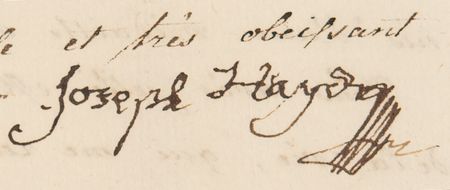 et très obeissant
Joseph Haydn